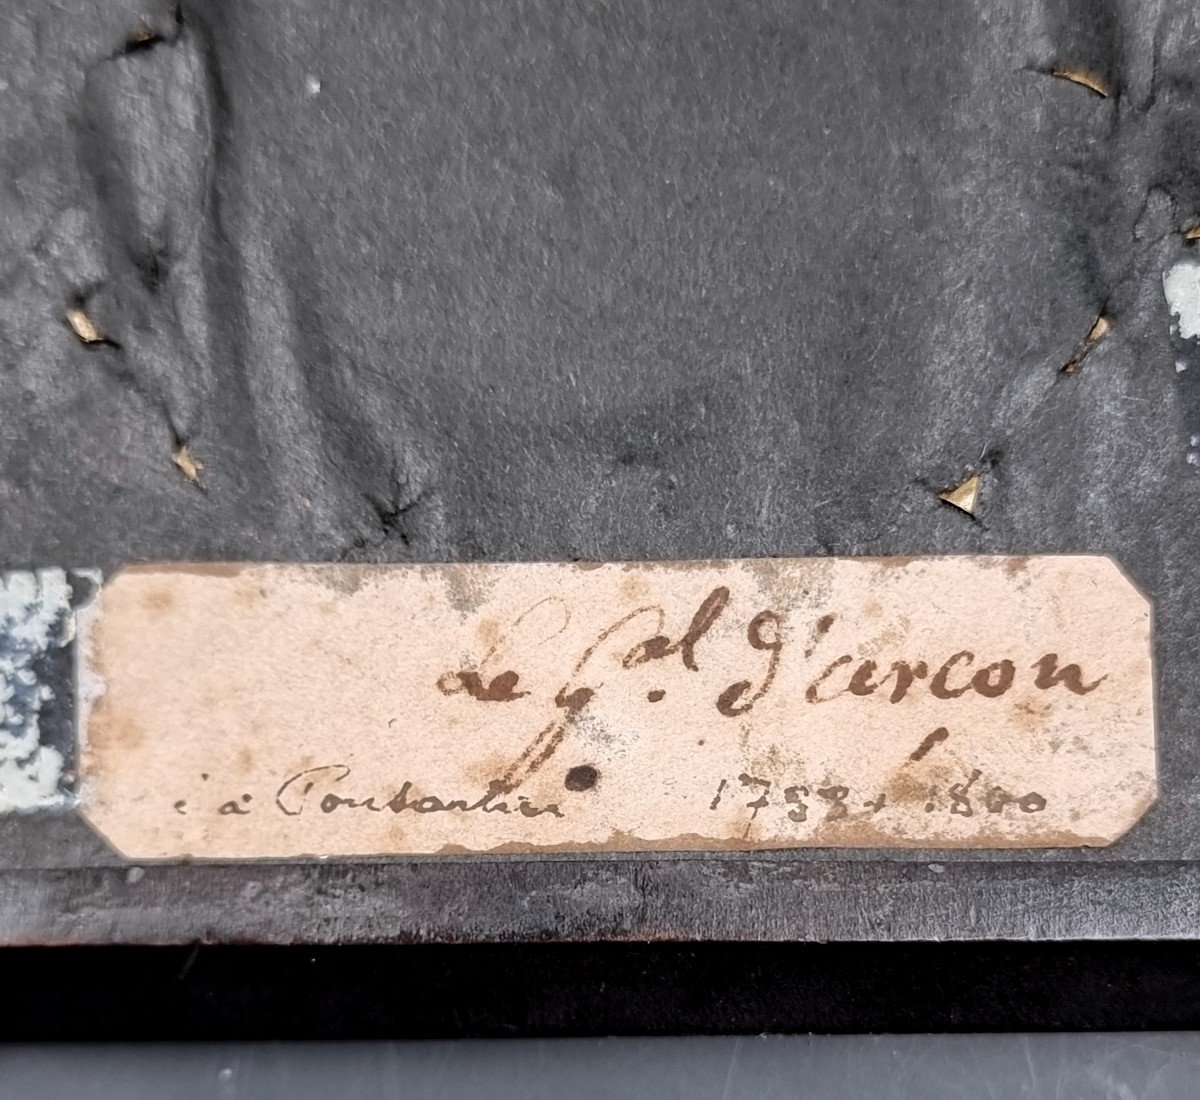 le Gal. d'arcon
à Pontarlier 1733 + 1800